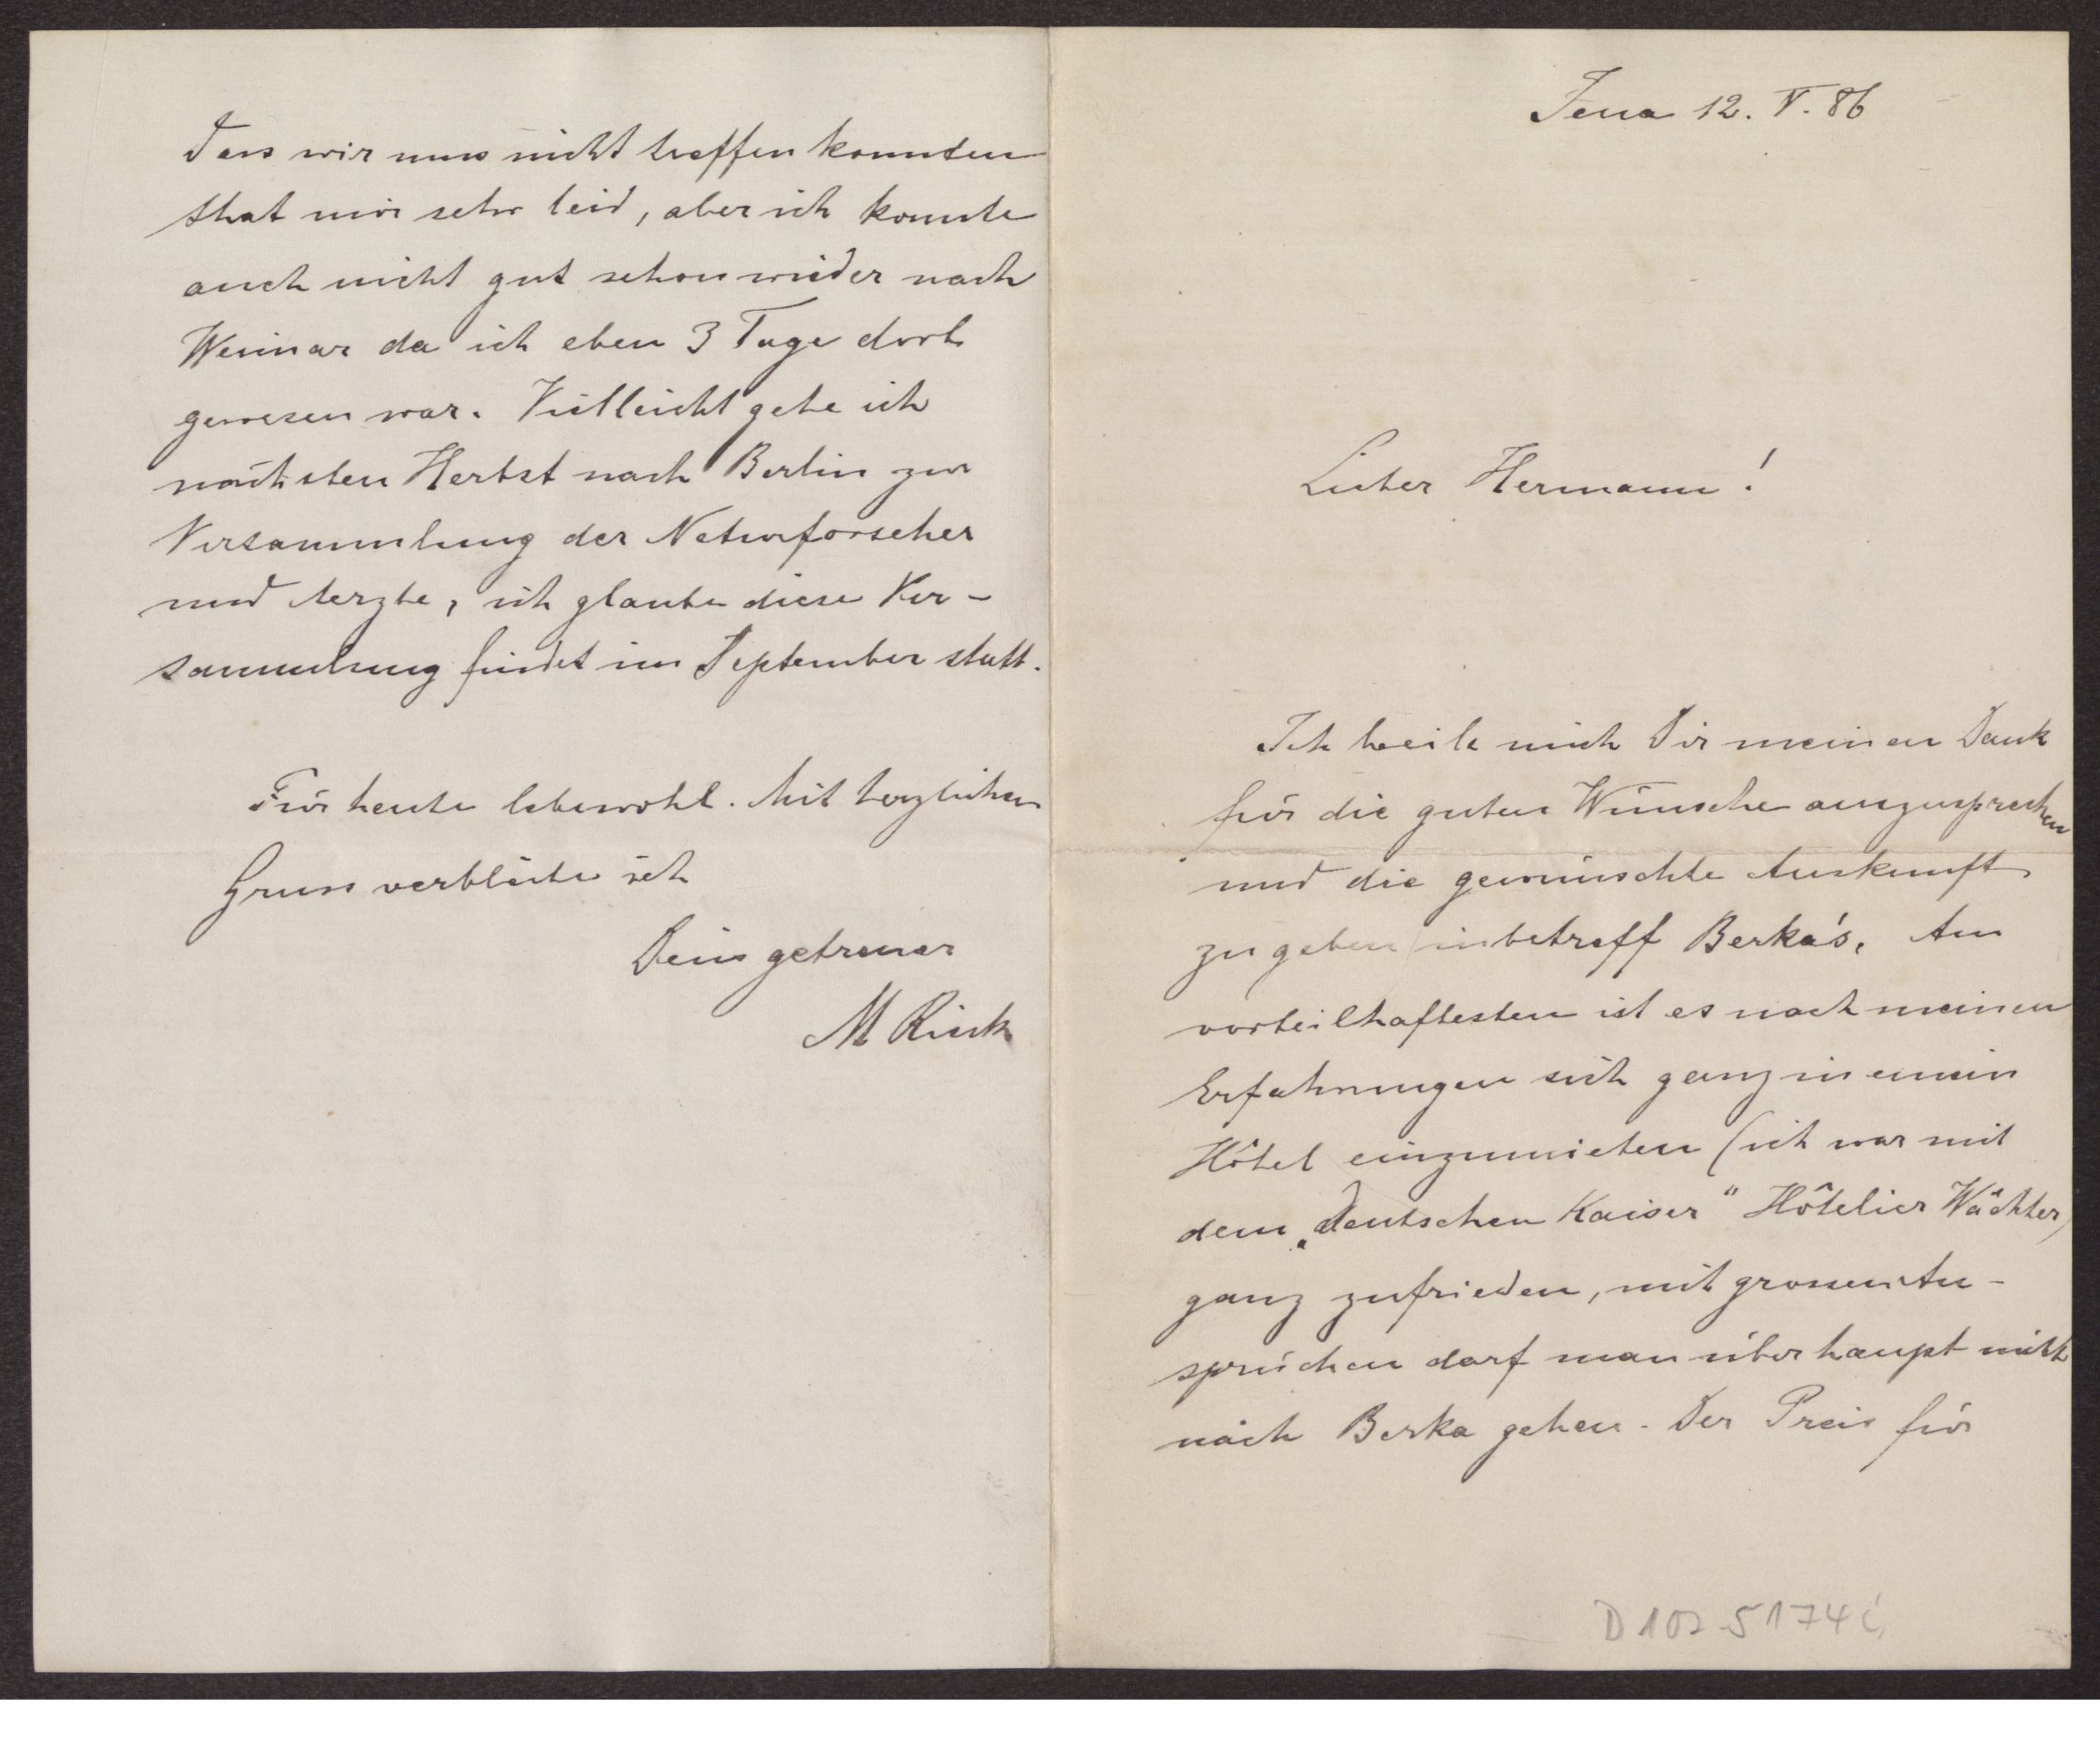 Jena 12. V. 86
Lieber Hermann!
Ich beeile mich Dir meinen Dank
für die guten Wünsche auszusprechen
und die gewünschte Auskunft
zu geben inbetreff Berka's. Am
vorteilhaftesten ist es nach meinen
Erfahrungen sich ganz in einem
Hôtel einzumieten (ich war mit
dem „deutschen Kaiser" Hôtelier Wächter)
ganz zufrieden, mit grossen An-
sprüchen darf man überhaupt nicht
nach Berka gehen. Der Preis für
D 102 5174
Dass wir uns nicht treffen konnten
that mir sehr leid, aber ich konnte
auch nicht gut schon wieder nach
Weimar da ich eben 3 Tage dort
gewesen war. Vielleicht gehe ich
nächsten Herbst nach Berlin zur
Versammlung der Naturforscher
und Aerzte, ich glaube diese Ver-
sammlung findet im September statt.
Für heute lebewohl. Mit herzlichem
Gruss verbleibe ich
Dein getreuer
M